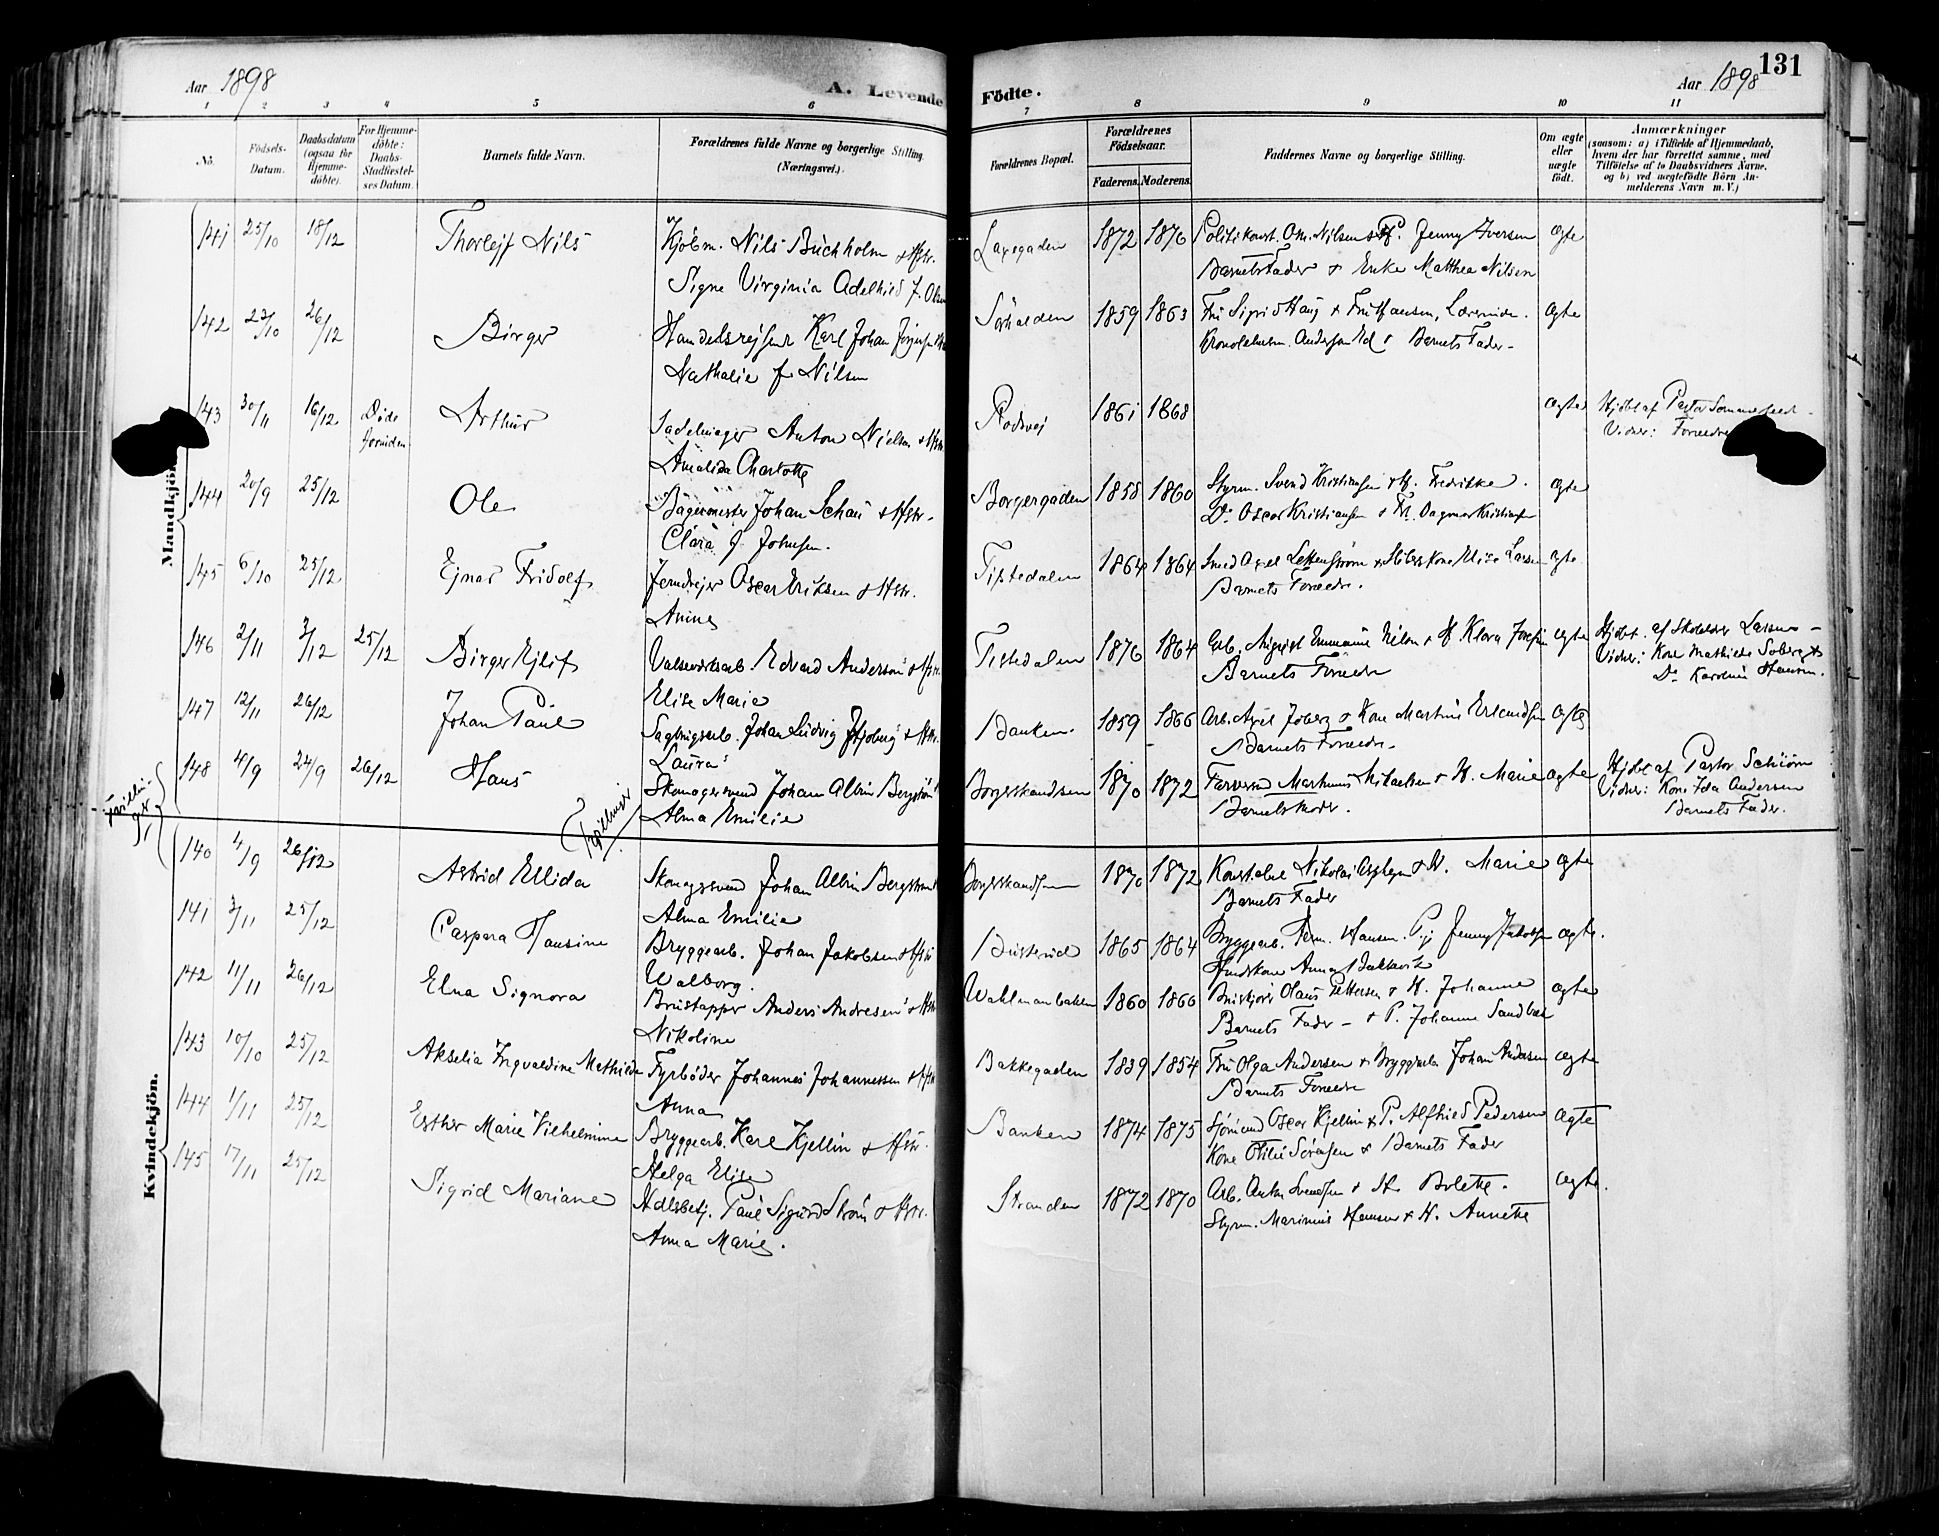 Aar 1898
A. Levende Födte.
Aar 1898
131
1 2 3 4 5 6 7 8 9 10 11
No. Födsels-Datum. Daabsdatum (ogsaa for Hjemme-döbte). For Hjemme-döbte: Daabs-Stadfæstel-ses Datum. Barnets fulde Navn. Forældrenes fulde Navne og borgerlige Stilling (Næringsvei.) Forældrenes Bopæl. Forældrenes Födselsaar. Faderens. Moderens. Faddernes Navne og borgerlige Stilling. Om ægte eller uægte födt. Anmærkninger (saasom: a) i Tilfælde af Hjemmedaab, hvem der har forrettet samme, med Tilföielse af to Daabsvidners Navne, og b) ved uægtefödte Börn An-melderens Navn m. V.)
Mandkjön.
141 25/10 18/12 Thorleif Nils Kjöbm. Nils Buchholm & Hstr. Laxegaden 1872 1876 Politikonst. Om. Nilsen & P. Jenny Iversen ægte
Signe Virginia Adelheid f. Olsen Barnets Fader & Enke Matthea Nilsen
142 23/10 26/12 Birger Handelsrejsende Karl Johan Sörhalden 1859 1863 Fru Sigrid Haug & Fru Hansen, ægte
Nathalie f. Nilsen Anderson & Barnets Fader
143 30/11 16/12 Döde forinden Arthur Sadelmager Anton Nielsen & Hstr. Rödsvej 1861 1868 ægte Hjdbt af Pastor
Amalida Charlotte Vidner:
144 20/9 25/12 Ole Bagermester Johan Schau & Hstr. Borgergaden 1858 1860 Styrm. Svend Kristiansen & H. Fredrikke. ægte
Clara J. Johnsen. Do Oscar Kristiansen & Fr. Dagmar Kristiansen
145 6/10 25/12 Ejnar Fridolf Jerndrejer Oscar Eriksen & Hstr. Tistedalen 1864 1864 Smed Axel & Kone Elise Larsen ægte
Anine Barnets Forældre.
146 2/11 3/12 25/12 Birger Ejlif Valseværksarb. Edvard Anderson & Hstr. Tistedalen 1876 1864 Arb. Emmanuel Nilsen & H. Klara ægte Hjdbt. af Larsen
Elise Marie Barnets Forældre Vidner: Kone Mathilde Solberg &
Do Karoline Hansen.
147 12/11 26/12 Johan Paul Sagbrugsarb. Johan Ludvig Sjöberg & Hstr. Banken 1859 1866 Arb. Axel Sjöberg & Kone Martine Erlandsen ægte
Laura Barnets Forældre
148 4/9 24/9 26/12 Hans Skomagersvend Johan Albin Bergström Borgerskandsen 1870 1872 Farversvend Martinius Mikaelsen & H. Marie ægte Hjdbt af Pastor Schiörn
Alma Emilie Barnets Moder. Vidner: Kone Ida Andersen
Barnets Fader.
Tvillinger
(Tvillinger
Kvindekjön.
140 4/9 26/12 Astrid Ellida Skomagersvend Johan Albin Bergström Borgerskandsen 1870 1872 Konstabel Nikolai & H. Marie ægte
Alma Emilie Barnets Fader
141 3/11 25/12 Caspara Hansine Bryggearb. Johan Jakobsen & Hstr. Busterud 1865 1864 Bryggearb. Hansen. Pij Jenny Jakobsen ægte.
Walborg. Anna
142 11/11 26/12 Elna Signora Brustapper Anders Andresen & Hstr Wahlmanbakken 1860 1866 Olaus Pettersen & H. Johanne ægte
Nikoline Barnets Fader & P. Johanne Sandbæk
143 10/10 25/12 Akselia Ingvaldine Mathilde Fyrböder Johannes Johannessen & Hstr Bakkegaden 1839 1854 Fru Olga Andersen & Bryggearb. Johan Andersen ægte
Anna Barnets Forældre
144 1/11 25/12 Esther Marie Vilhelmine Bryggearb. Karl Kjellin & Hstr. Banken 1874 1875 Sjömand Oscar Kjellin & P. Alfhild Pedersen ægte
Helga Elise Kone Otilie Sörensen & Barnets Fader
145 17/11 25/12 Sigrid Mariane Hdlsbetj. Paul Sigurd Ström & Hstr. Stranden 1872 1870 Arb. Anton Svendsen & H. Bolette. ægte.
Anna Marie. Styrm. Marinius Hansen & H. Annette